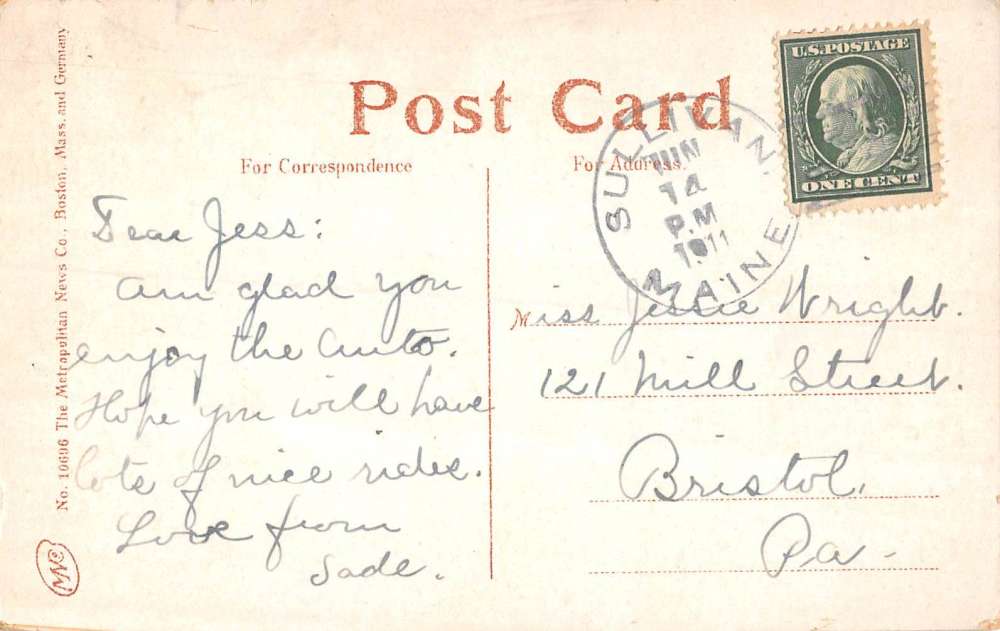 Post Card
For Correspondence
For Address.
U.S.POSTAGE
ONE CENT
SULLIVAN,
JUN
14
P.M
1911
MAINE
Dear Jess:
Am glad you
enjoy the auto.
Hope you will have
lots of nice rides.
Love from
Sade.
Miss Jessie Wright.
121 Mill Street.
Bristol,
Pa-
No. 10696 The Metropolitan News Co., Boston, Mass. and Germany